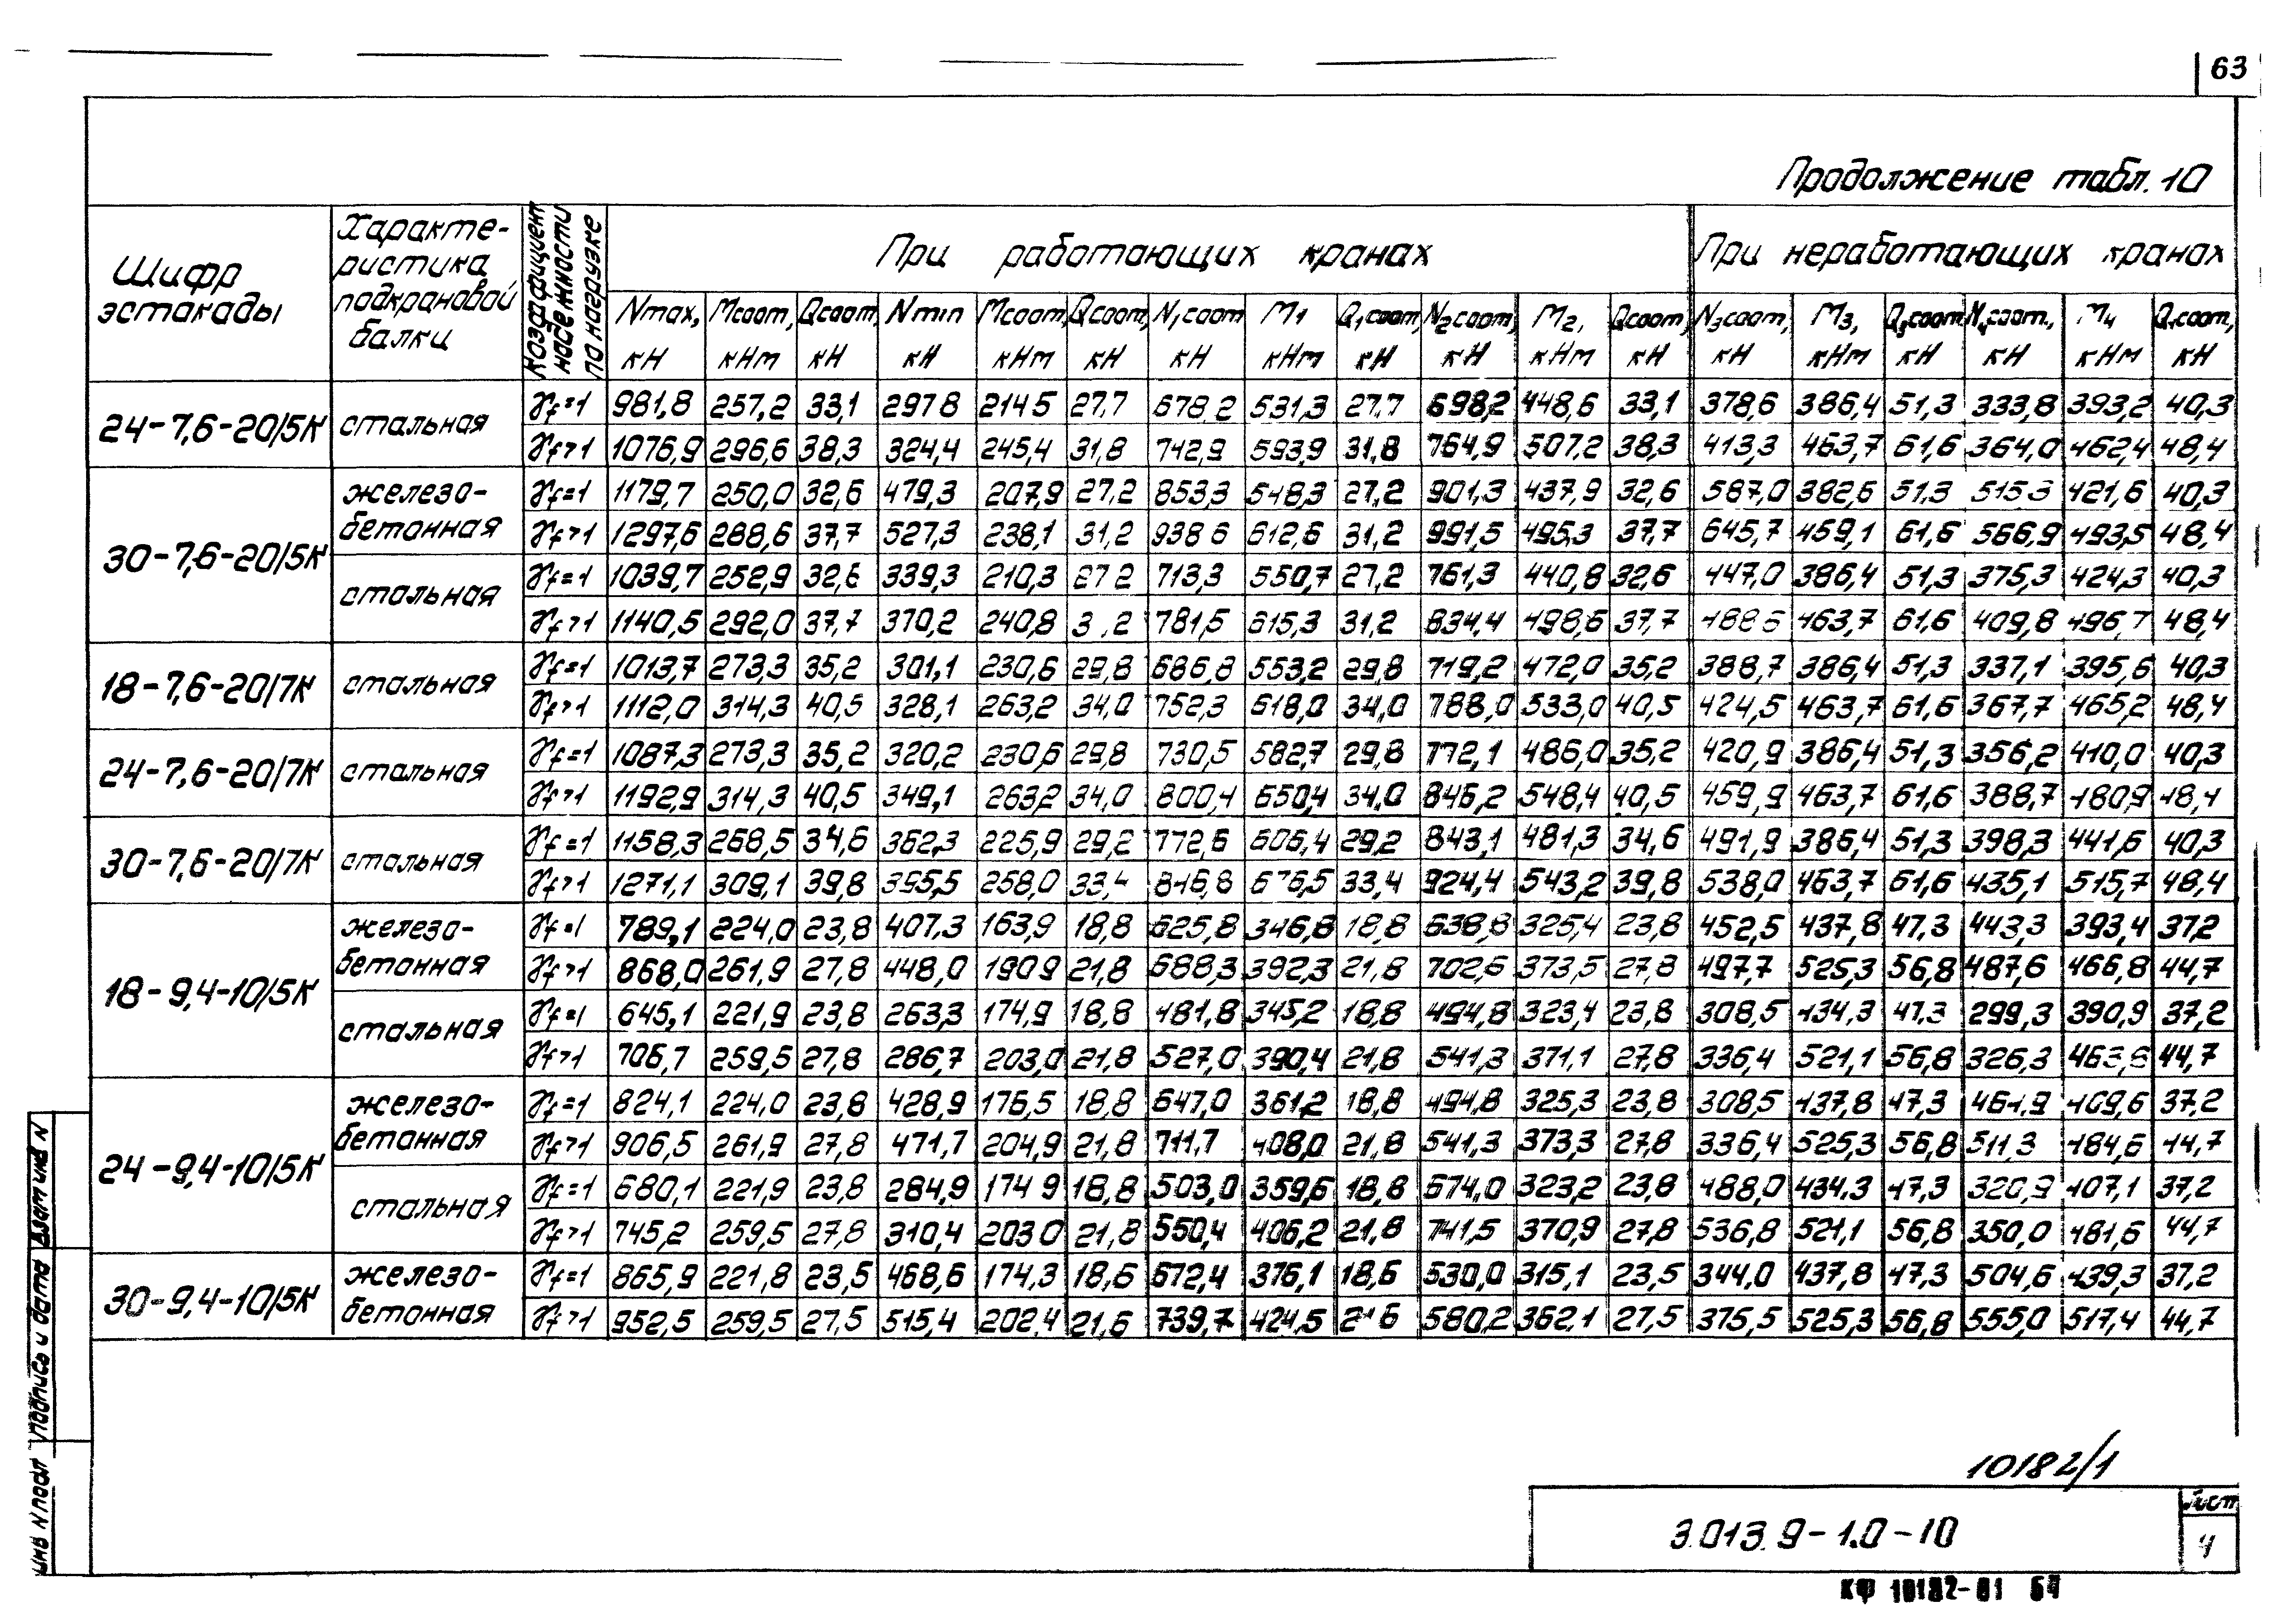 63
Продолжение табл. 10
Шифр эстакады
Характеристика подкрановой балки
Коэффициент надежности по нагрузке
При работающих кранах
При неработающих кранах
Nmax, Mсоот, Qсоот, Nmin Mсоот, Qсоот, N1соот M1 Q1соот, N2соот, M2, Qсоот, N3соот, M3, Q3соот N4соот., M4 Q4соот,
кН кНм кН кН кНм кН кН кНм кН кН кНм кН кН кНм кН кН кНм кН
24-7,6-20/5К стальная γf=1 981,8 257,2 33,1 297 8 214 5 27,7 678,2 531,3 27,7 698,2 448,6 33,1 378,6 386,4 51,3 333,8 393,2 40,3
γf>1 1076,9 296,6 38,3 324,4 245,4 31,8 742,9 593,9 31,8 764,9 507,2 38,3 413,3 463,7 61,6 364,0 462,4 48,4
30-7,6-20/5К железобетонная γf=1 1179,7 250,0 32,6 479,3 207,9 27,2 853,3 548,3 27,2 901,3 437,9 32,6 587,0 382,6 51,3 515,3 421,6 40,3
γf>1 1297,6 288,6 37,7 527,3 238,1 31,2 938 6 612,6 31,2 991,5 495,3 37,7 645,7 459,1 61,6 566,9 493,5 48,4
стальная γf=1 1039,7 252,9 32,6 339,3 210,3 27 2 713,3 550,7 27,2 761,3 440,8 32,6 447,0 386,4 51,3 375,3 424,3 40,3
γf>1 1140,5 292,0 37,7 370,2 240,8 3 ,2 781,5 615,3 31,2 834,4 498,6 37,7 488 6 463,7 61,6 409,8 496,7 48,4
18-7,6-20/7К стальная γf=1 1013,7 273,3 35,2 301,1 230,6 29,8 686,8 553,2 29,8 719,2 472,0 35,2 388,7 386,4 51,3 337,1 395,6 40,3
γf>1 1112,0 314,3 40,5 328,1 263,2 34,0 752,3 618,0 34,0 788,0 533,0 40,5 424,5 463,7 61,6 367,7 465,2 48,4
24-7,6-20/7К стальная γf=1 1087,3 273,3 35,2 320,2 230,6 29,8 730,5 582,7 29,8 772,1 486,0 35,2 420,9 386,4 51,3 356,2 410,0 40,3
γf>1 1192,9 314,3 40,5 349,1 263,2 34,0 800,4 650,4 34,0 846,2 548,4 40,5 459,9 463,7 61,6 388,7 480,9 48,4
30-7,6-20/7К стальная γf=1 1158,3 268,5 34,6 362,3 225,9 29,2 772,6 606,4 29,2 843,1 481,3 34,6 491,9 386,4 51,3 398,3 441,6 40,3
γf>1 1271,1 309,1 39,8 395,5 258,0 33,4 846,8 676,5 33,4 924,4 543,2 39,8 538,0 463,7 61,6 435,1 515,7 48,4
18-9,4-10/5К железобетонная γf=1 789,1 224,0 23,8 407,3 163,9 18,8 625,8 346,8 18,8 638,8 325,4 23,8 452,5 437,8 47,3 443,3 393,4 37,2
γf>1 868,0 261,9 27,8 448,0 190 9 21,8 688,3 392,3 21,8 702,6 373,5 27,8 497,7 525,3 56,8 487,6 466,8 44,7
стальная γf=1 645,1 221,9 23,8 263,3 174,9 18,8 481,8 345,2 18,8 494,8 323,4 23,8 308,5 434,3 47,3 299,3 390,9 37,2
γf>1 706,7 259,5 27,8 286,7 203,0 21,8 527,0 390,4 21,8 541,3 371,1 27,8 336,4 521,1 56,8 326,3 463,8 44,7
24-9,4-10/5К железобетонная γf=1 824,1 224,0 23,8 428,9 176,5 18,8 647,0 361,2 18,8 494,8 325,3 23,8 308,5 437,8 47,3 464,9 409,6 37,2
γf>1 906,5 261,9 27,8 471,7 204,9 21,8 711,7 408,0 21,8 541,3 373,3 27,8 336,4 525,3 56,8 511,3 484,6 44,7
стальная γf=1 680,1 221,9 23,8 284,9 174 9 18,8 503,0 359,6 18,8 674,0 323,2 23,8 488,0 434,3 47,3 320,9 407,1 37,2
γf>1 745,2 259,5 27,8 310,4 203 0 21,8 550,4 406,2 21,8 741,5 370,9 27,8 536,8 521,1 56,8 350,0 481,6 44,7
30-9,4-10/5К железобетонная γf=1 865,9 221,8 23,5 468,6 174,3 18,6 672,4 376,1 18,6 530,0 315,1 23,5 344,0 437,8 47,3 504,6 439,3 37,2
γf>1 952,5 259,5 27,5 515,4 202,4 21,6 739,7 424,5 21 6 580,2 362,1 27,5 375,5 525,3 56,8 555,0 517,4 44,7
Инв N подл Подпись и дата Взам инв N
10182/1
3.013.9-1.0-10
Лист
4
КФ 10182-01 64